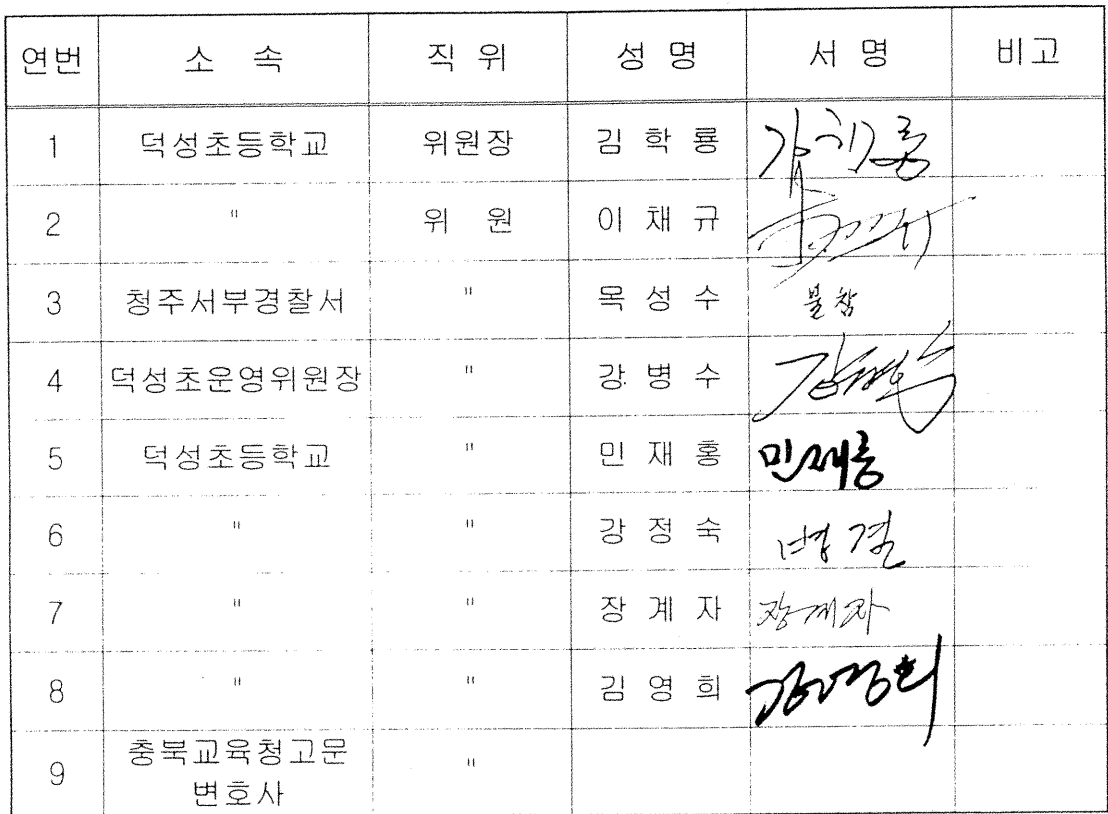 연번 소 속 직 위 성 명 서 명 비고
1 덕성초등학교 위원장 김 학 룡
2 " 위 원 이 채 규
3 청주서부경찰서 " 목 성 수 불참
4 덕성초운영위원장 " 강 병 수 강병수
5 덕성초등학교 " 민 재 홍 민재홍
6 " " 강 정 숙 병결
7 " " 장 계 자 장계자
8 " " 김 영 희 김영희
9 충북교육청고문 "
변호사